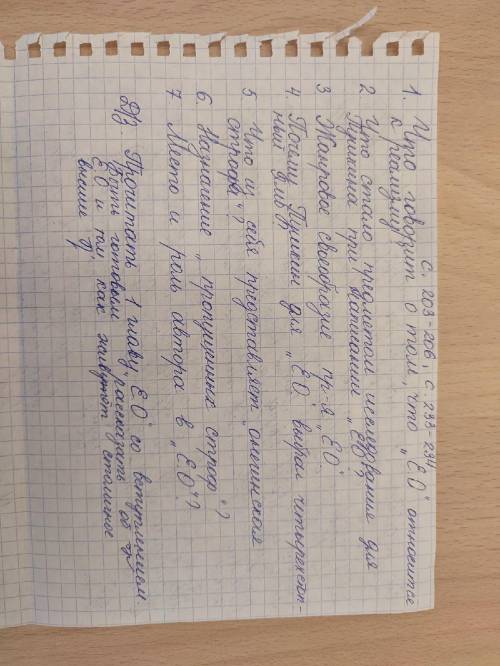 с. 203-206, с 233-234
1. Что говорит о том, что „Е.О" относится
к реализму?
2 Что стало предметом исследования для
Пушкина при написании „ЕО"?
3 Жанровое своеобразие пр-я „ЕО"
4. Почему Пушкин для „ЕО" выбрал четырехстоп-
ный ямб
5 Что из себя представляет „онегинская
строфа"?
6. Назначение „пропущенных строф"?
7 Место и роль автора в „Е.О"?
Д/з. Прочитать 1 главу „Е.О" со вступлением
Быть готовым рассказать об
ЕО и том как живут столичное
высшее